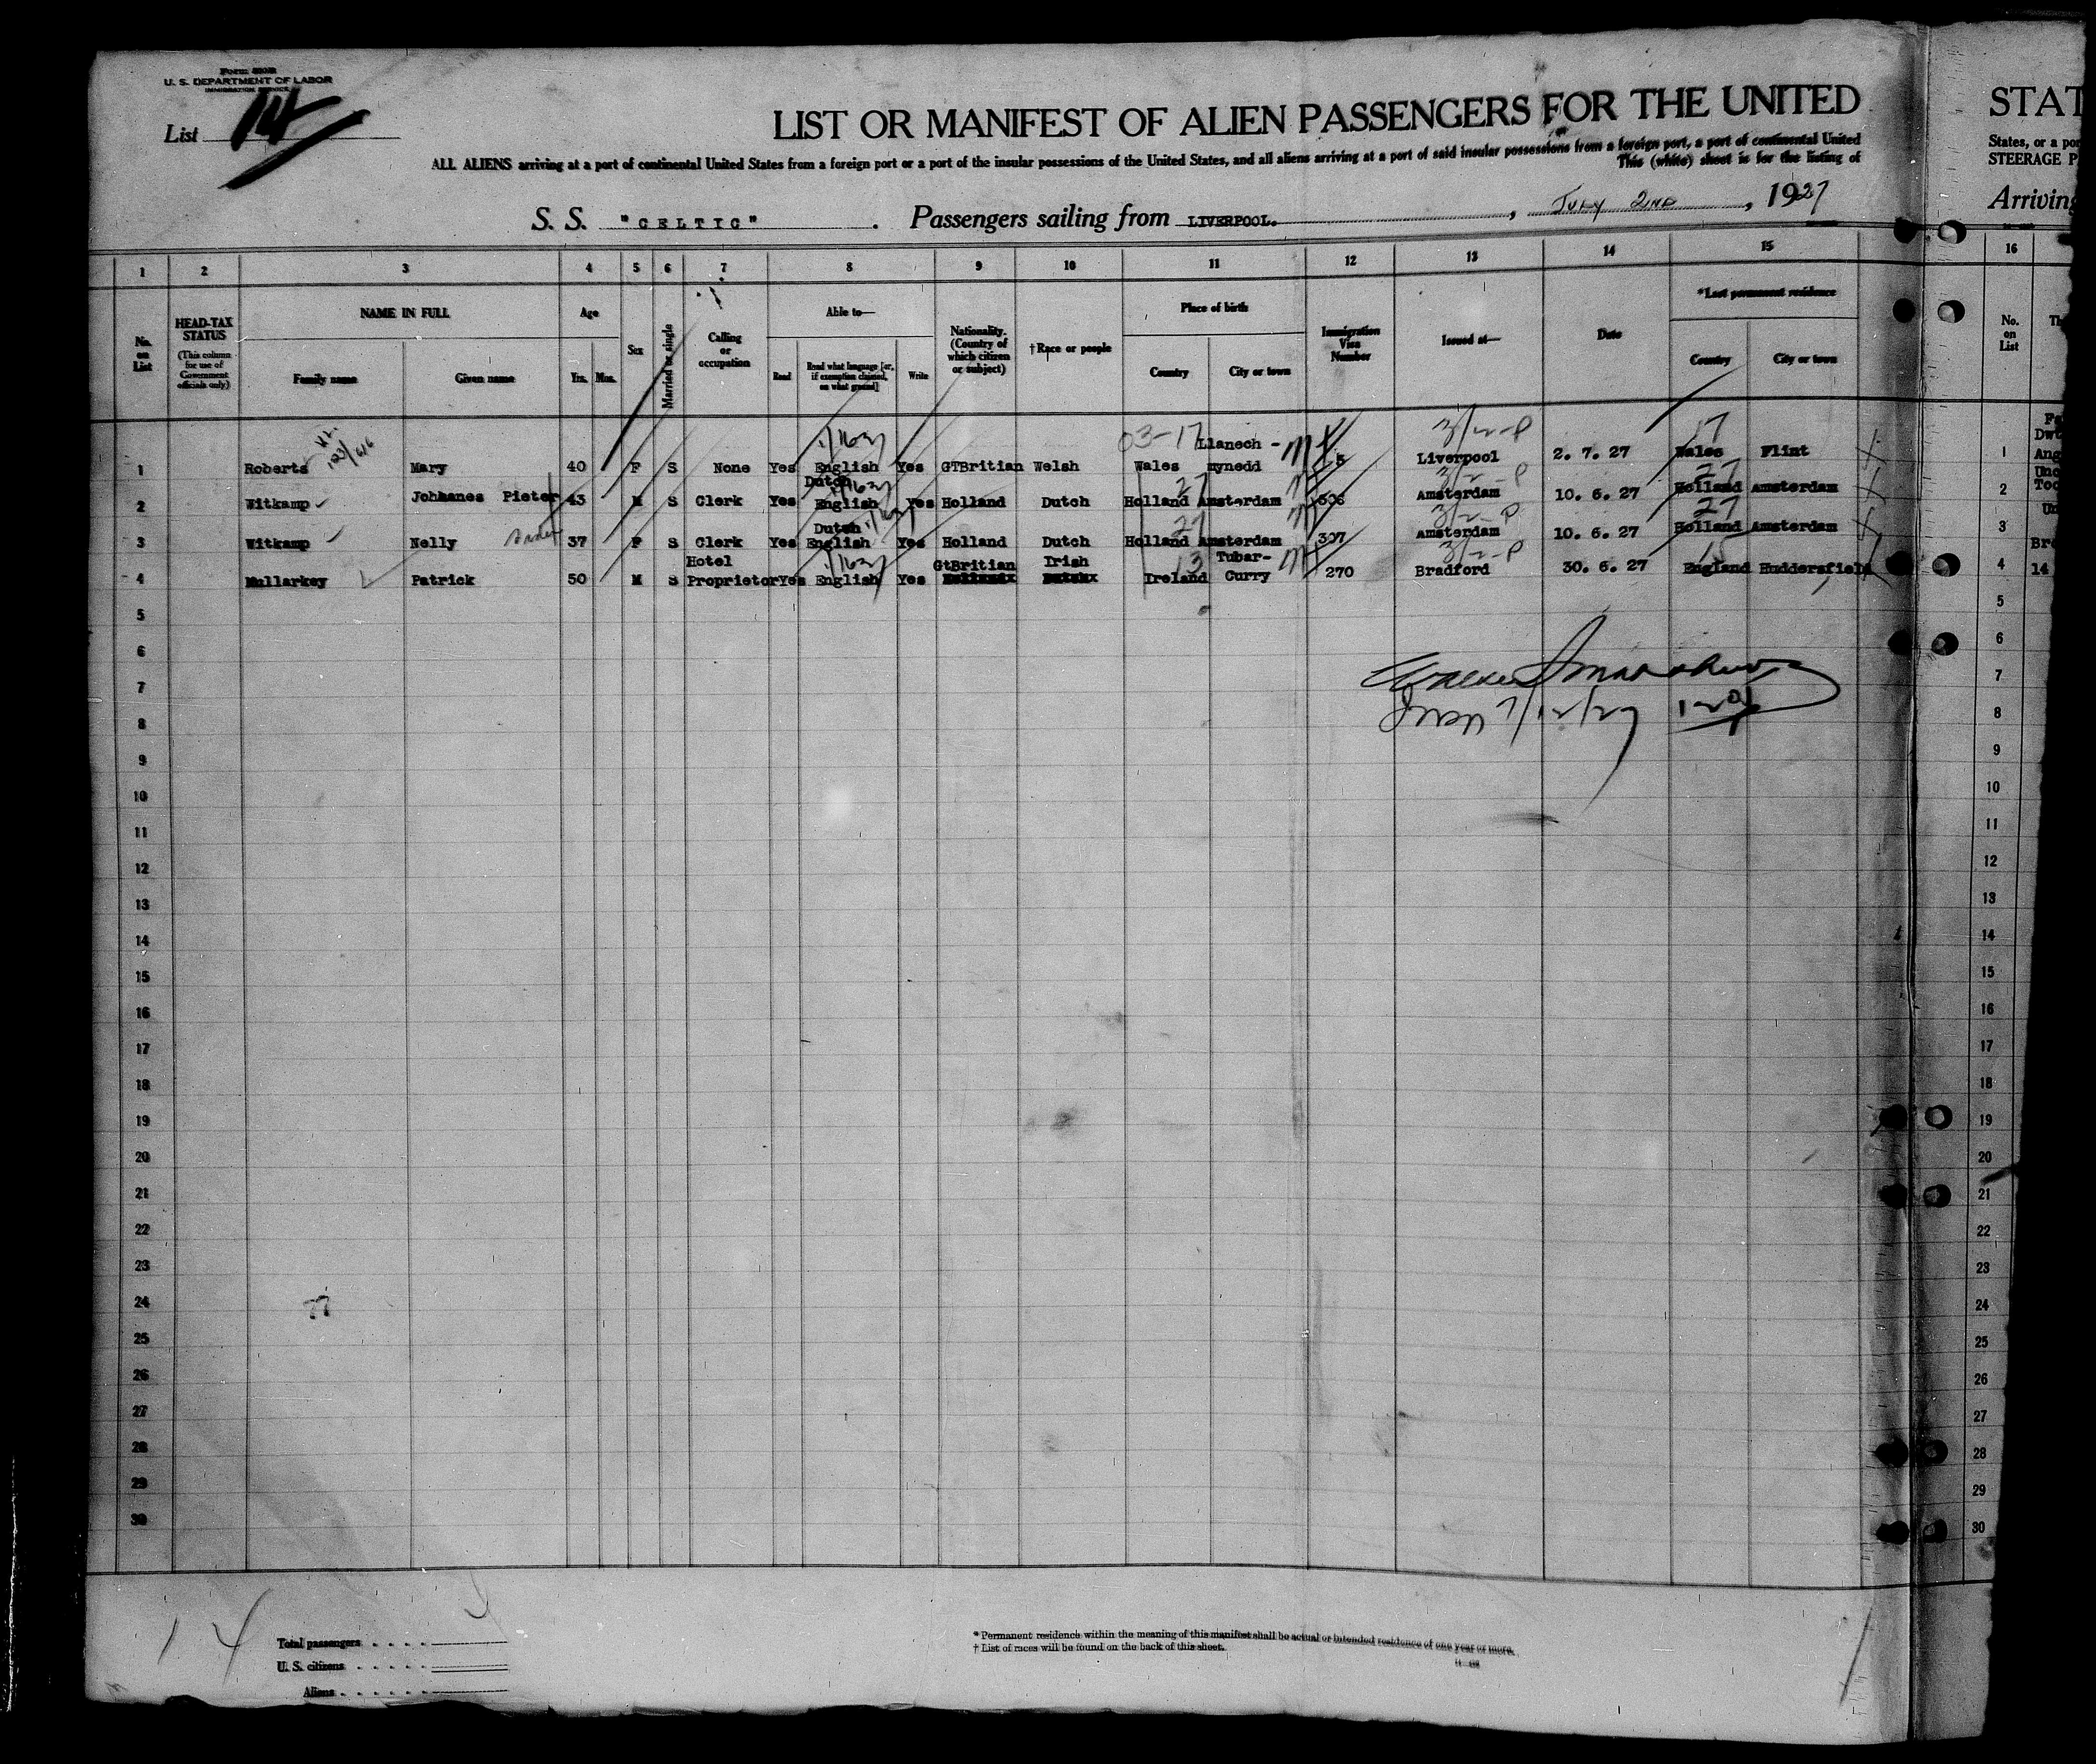 U. S. DEPARTMENT OF LABOR
IMMIGRATION SERVICE
List 14
LIST OR MANIFEST OF ALIEN PASSENGERS FOR THE UNITED
STAT
ALL ALIENS arriving at a port of continental United States from a foreign port or a port of the insular possessions of the United States, and all aliens arriving at a port of said insular possessions from a foreign port, a port of continental United
States, or a por
This (white) sheet is for the listing of
STEERAGE P
S. S. "CELTIC". Passengers sailing from LIVERPOOL. , JULY 2ND , 1927
Arriving
1 2 3 4 5 6 7 8 9 10 11 12 13 14 15 16
No. on List
HEAD-TAX STATUS
(This column for use of Government officials only)
NAME IN FULL
Family name Given name
Age
Yrs. Mos.
Sex
Married or single
Calling or occupation
Able to—
Read
Read what language [or, if exemption claimed, on what ground]
Write
Nationality. (Country of which citizen or subject)
†Race or people
Place of birth
Country City or town
Immigration Visa Number
Issued at—
Date
*Last permanent residence
Country City or town
No. on List
03-17 Llanech - 3/2-P 17
1 Roberts Mary 40 F S None Yes English Yes GTBritian Welsh Wales mynedd 5 Liverpool 2. 7. 27 Wales Flint 1
Dutch 27 3/2-P 27
2 Witkamp Johhanes Pieter 43 M S Clerk Yes English Yes Holland Dutch Holland Amsterdam 306 Amsterdam 10. 6. 27 Holland Amsterdam 2
Dutch 27 3/2-P 27
3 Witkamp Nelly 37 F S Clerk Yes English Yes Holland Dutch Holland Amsterdam 307 Amsterdam 10. 6. 27 Holland Amsterdam 3
Hotel GtBritian Irish 13 Tubar- 3/2-P 15
4 Mullarkey Patrick 50 M S Proprietor Yes English Yes Ireland Curry 270 Bradford 30. 6. 27 England Huddersfield 4 14
5 5
6 6
7 7
7/12/27
8 8
9 9
10 10
11 11
12 12
13 13
14 14
15 15
16 16
17 17
18 18
19 19
20 20
21 21
22 22
23 23
24 24
25 25
26 26
27 27
28 28
29 29
30 30
14
Total passengers . . . .
U. S. citizens . . . . .
Aliens . . . . . .
* Permanent residence within the meaning of this manifest shall be actual or intended residence of one year or more.
† List of races will be found on the back of this sheet.